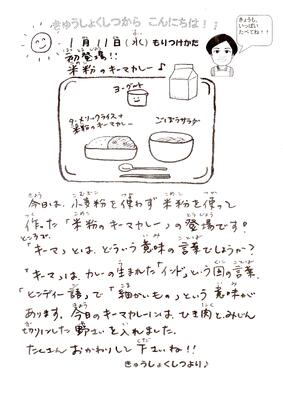 きゅうしょくしつから こんにちは!
きょうも、
いっぱい
たべてね!!
1月11日(水)もりつけかた
初登場!!
米粉のキーマカレー♪
ヨーグルト
ターメリックライス+
米粉のキーマカレー
ごぼうサラダ
今日は、小麦粉を使わず米粉を使って
作った「米粉のキーマカレー」の登場です!
ところで、
「キーマ」とは、どういう意味の言葉でしょうか?
「キーマ」は、カレーの生まれた「インド」という国の言葉、
「ヒンディー語」で「細かいもの」という意味が
あります。今日のキーマカレーには、ひき肉と、みじん
切りにした野さいを入れました。
たくさんおかわりして下さいね!!
きゅうしょくしつより♪